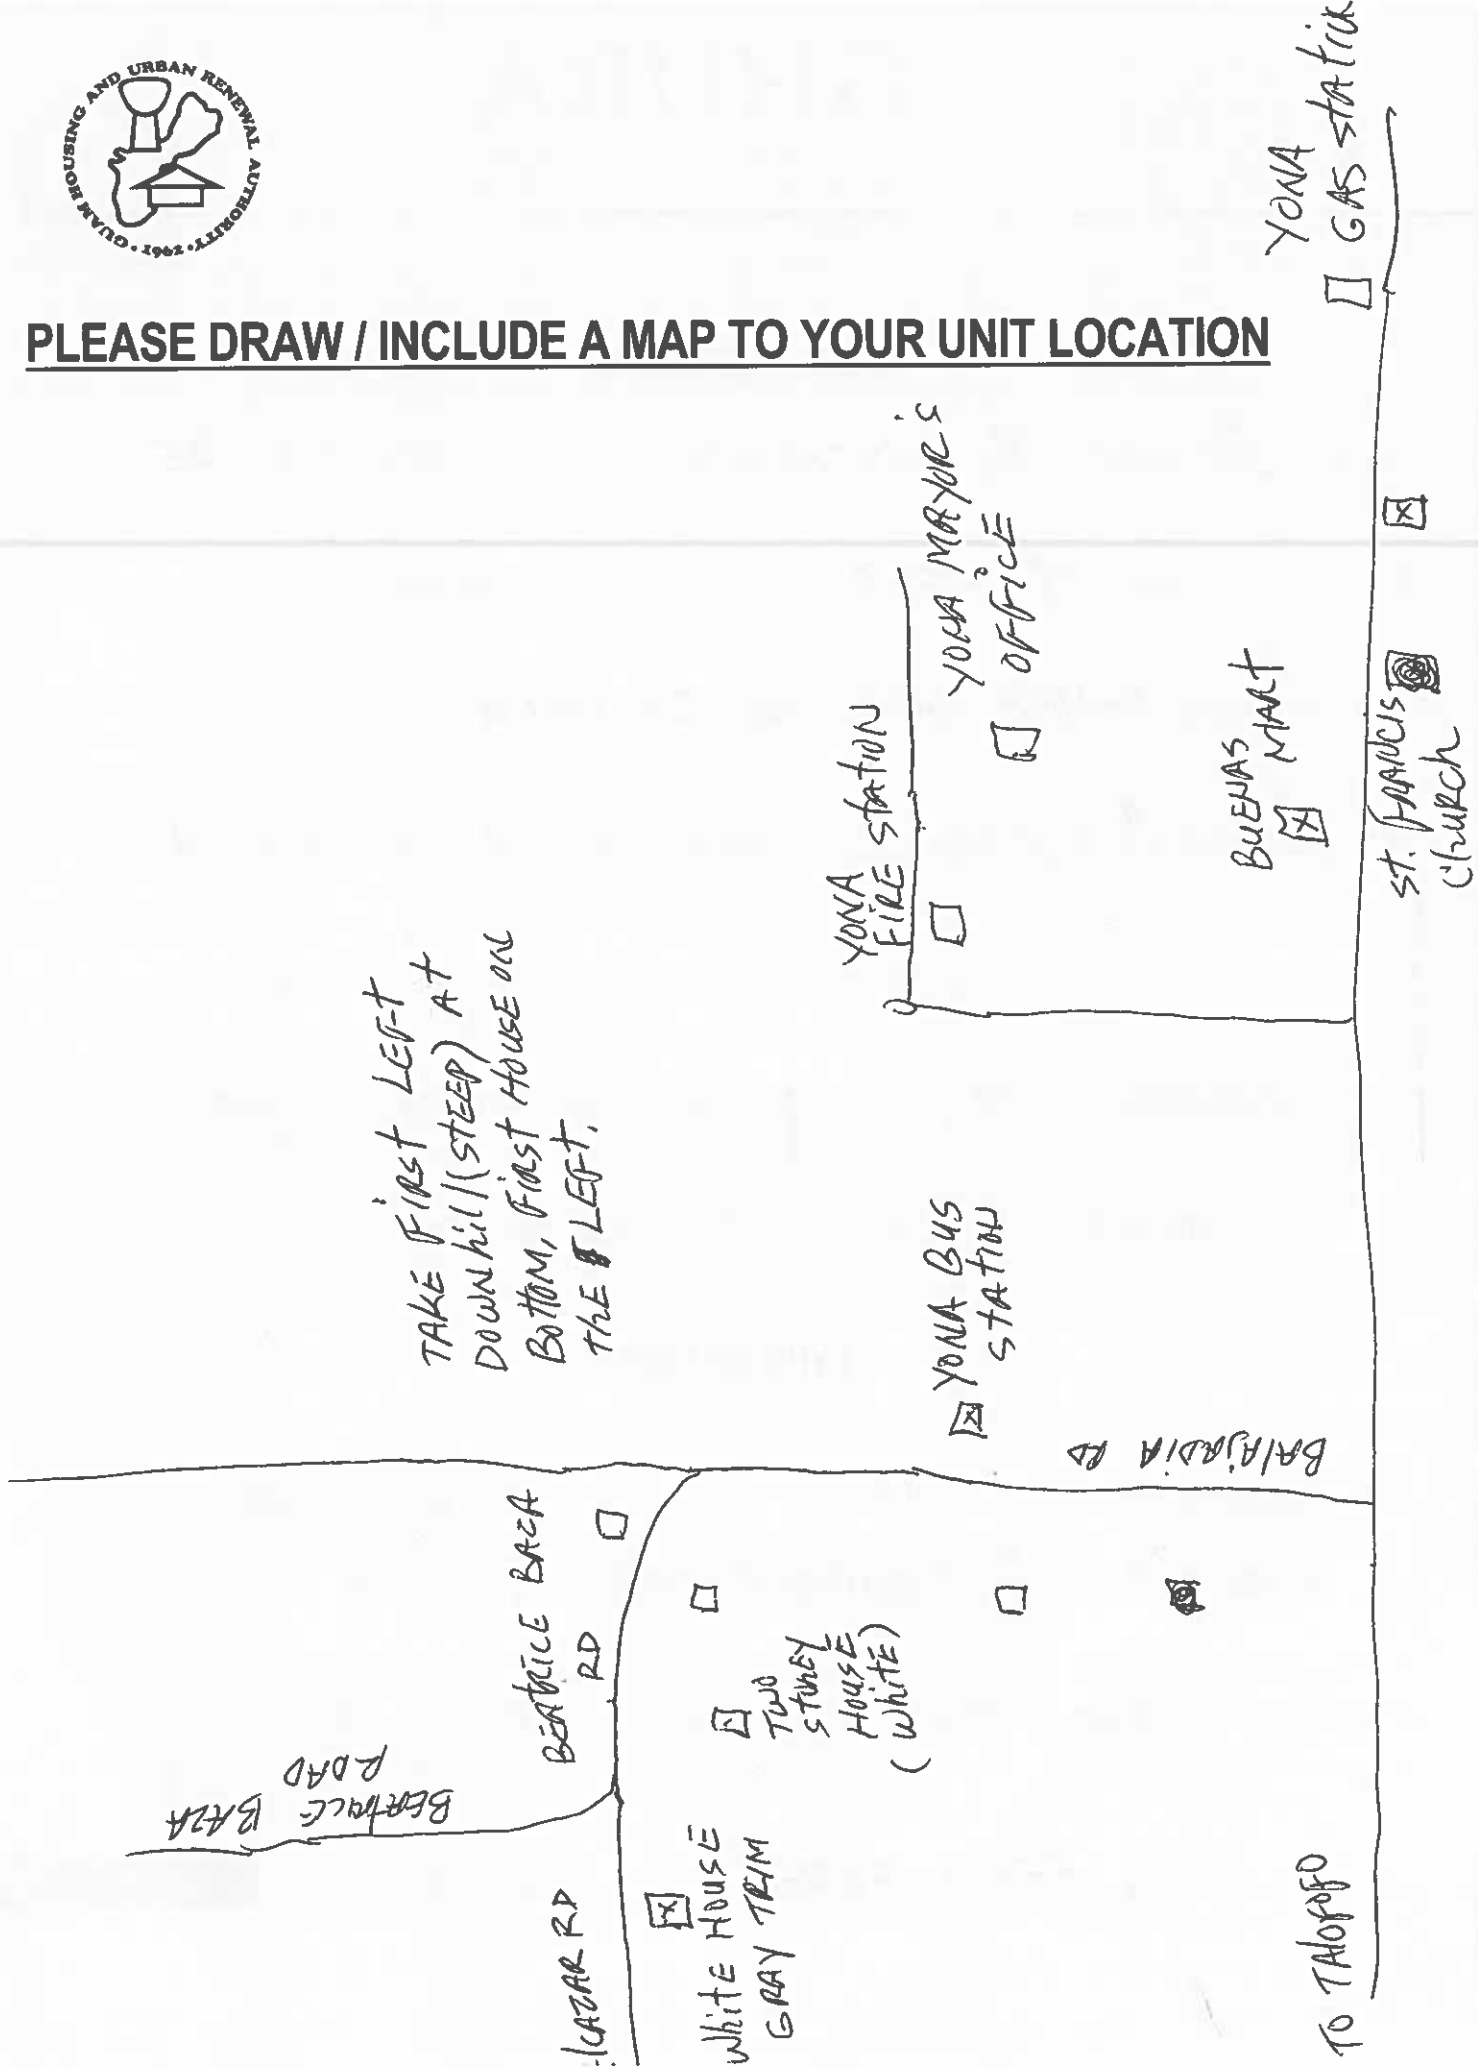 GUAM HOUSING AND URBAN RENEWAL AUTHORITY · 1962 ·
PLEASE DRAW / INCLUDE A MAP TO YOUR UNIT LOCATION
YONA
GAS STATION
YONA MAYOR'S
OFFICE
YONA
FIRE STATION
BUENAS
MART
ST. FRANCIS
Church
TAKE FIRST LEFT
DOWNhill (STEEP) AT
BOTTOM, FIRST HOUSE ON
ThE LEFT.
YONA BUS
STATION
BALAJADIA RD
BEATRICE BAZA
RD
BEATRICE BAZA
ROAD
TWO
STOREY
HOUSE
(White)
White HOUSE
GRAY TRIM
TO TALOFOFO